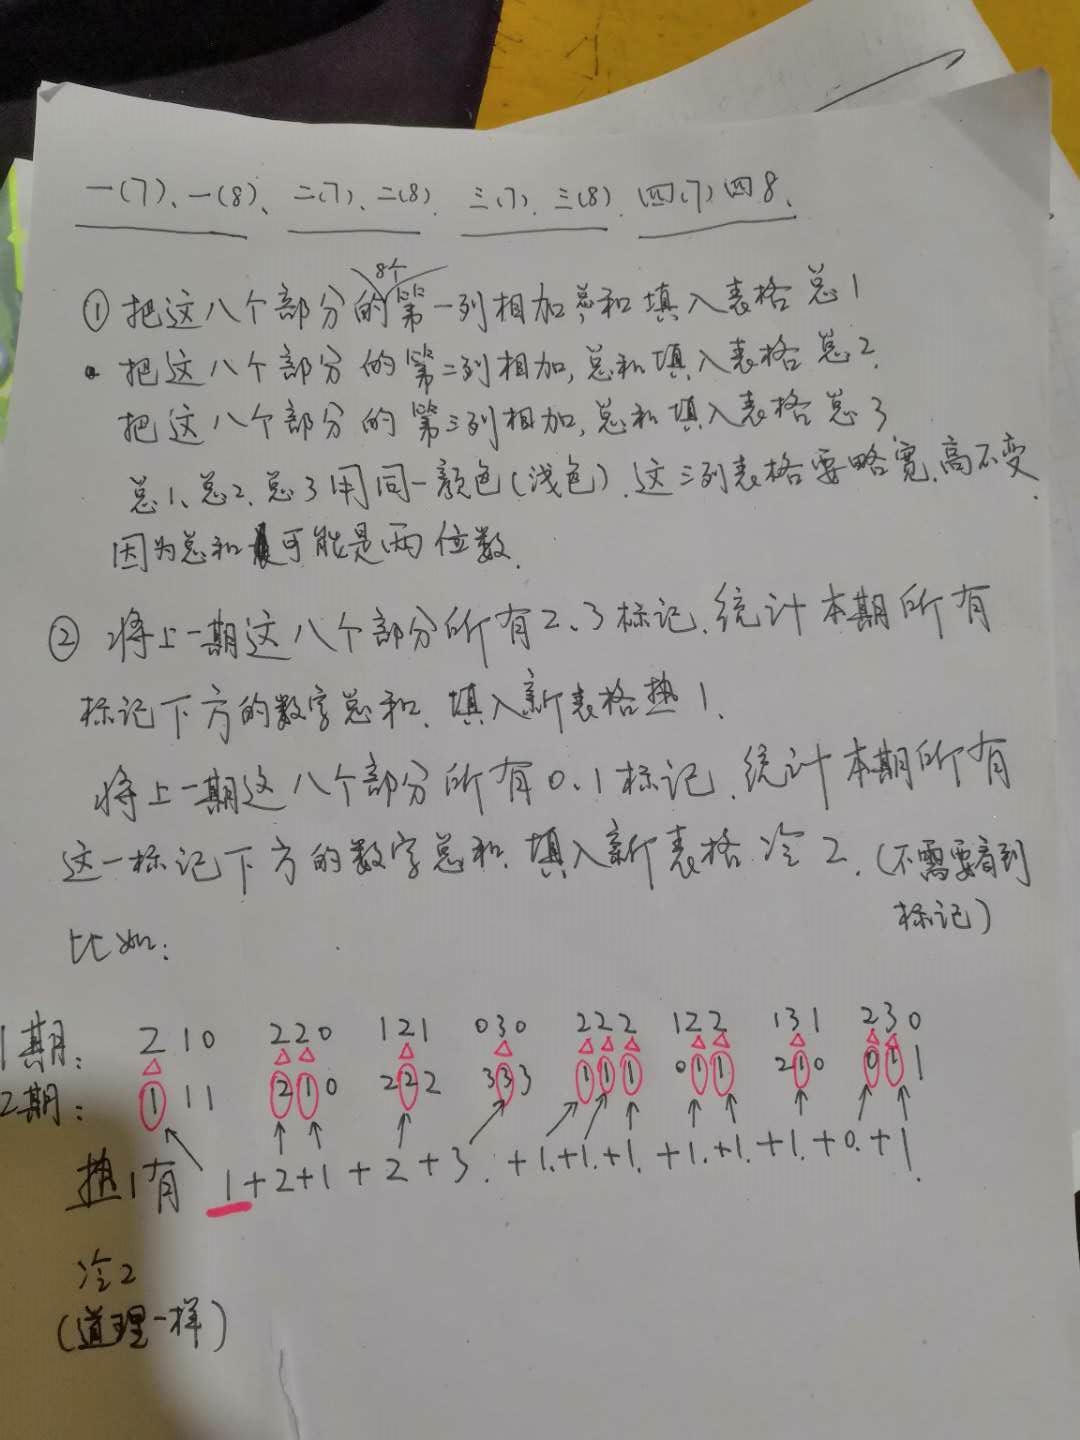 一(7)、一(8)、 二(7)、二(8). 三(7). 三(8). 四(7) 四8、
8个
① 把这八个部分的第一列相加总和填入表格总1
把这八个部分的第二列相加,总和填入表格总2.
把这八个部分的第三列相加,总和填入表格总3
总1、总2、总3用同一颜色(浅色).这三列表格要略宽、高不变.
因为总和可能是两位数.
② 将上一期这八个部分所有2、3标记.统计本期所有
标记下方的数字总和.填入新表格热1.
将上一期这八个部分所有0.1标记.统计本期所有
这一标记下方的数字总和.填入新表格冷2.(不需要看到
标记)
比如:
1期: 210 220 121 030 222 122 131 230
2期: 111 210 222 333 111 011 210 011
热1有 1+2+1+2+3.+1.+1.+1.+1.+1.+1.+0.+1.
冷2
(道理一样)